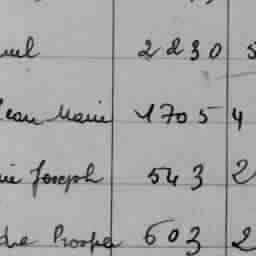 2230 5
Jean Marie 1705 4
Joseph 543 2
Prosper 603 2